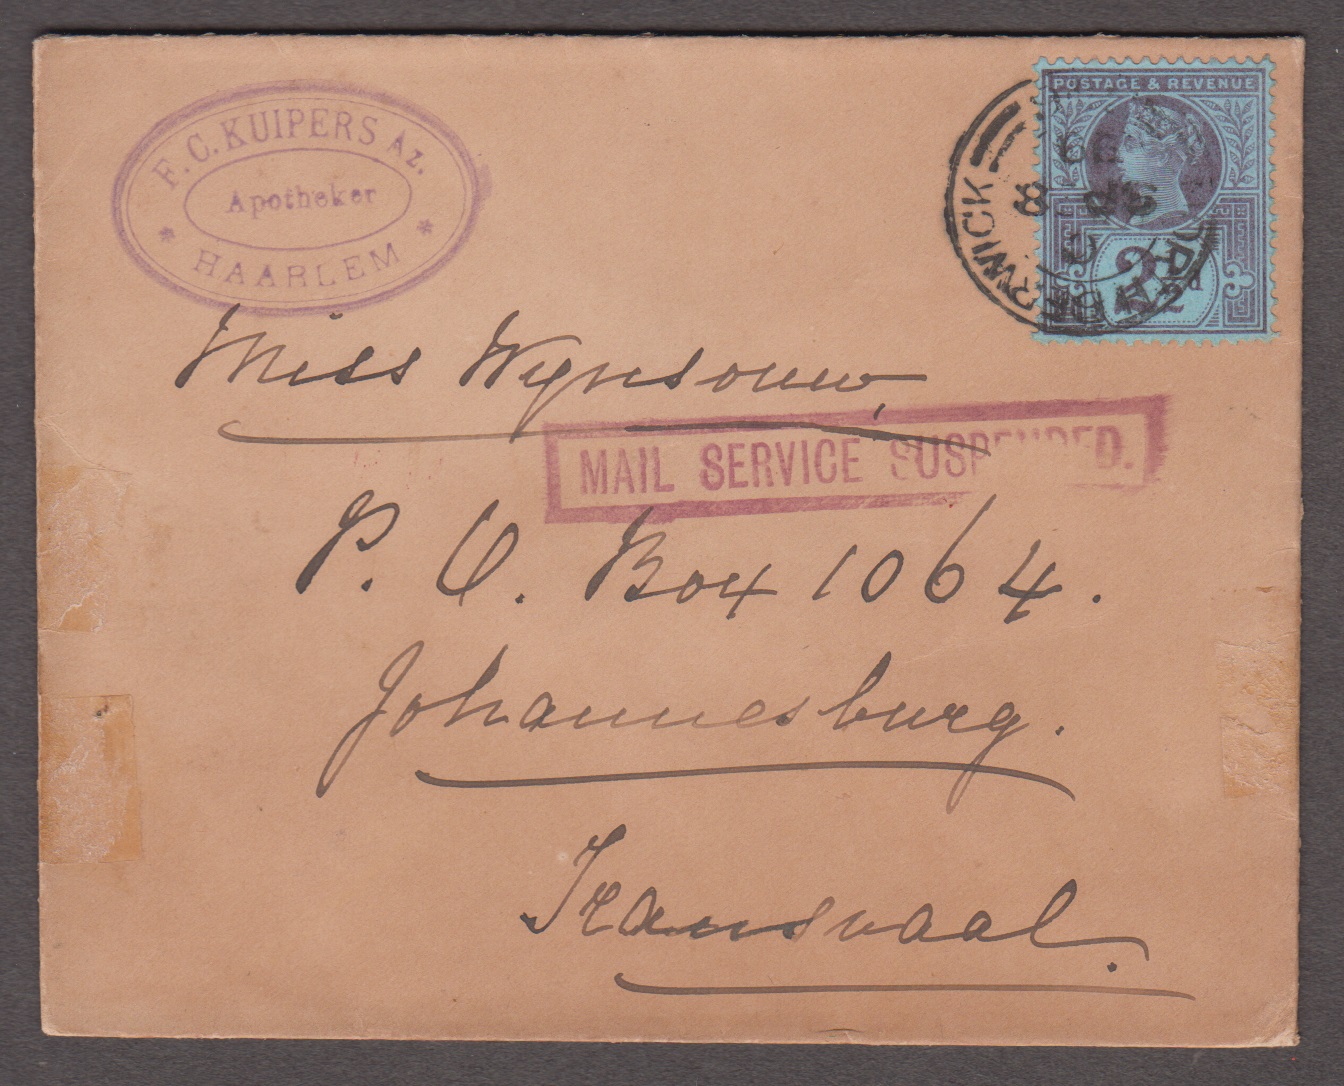 F. C. KUIPERS Az.
Apotheker
* HAARLEM *
POSTAGE & REVENUE
2½d
BERWICK
Miss Wynsouw,
MAIL SERVICE SUSPENDED.
P. O. Box 1064.
Johannesburg.
Transvaal.